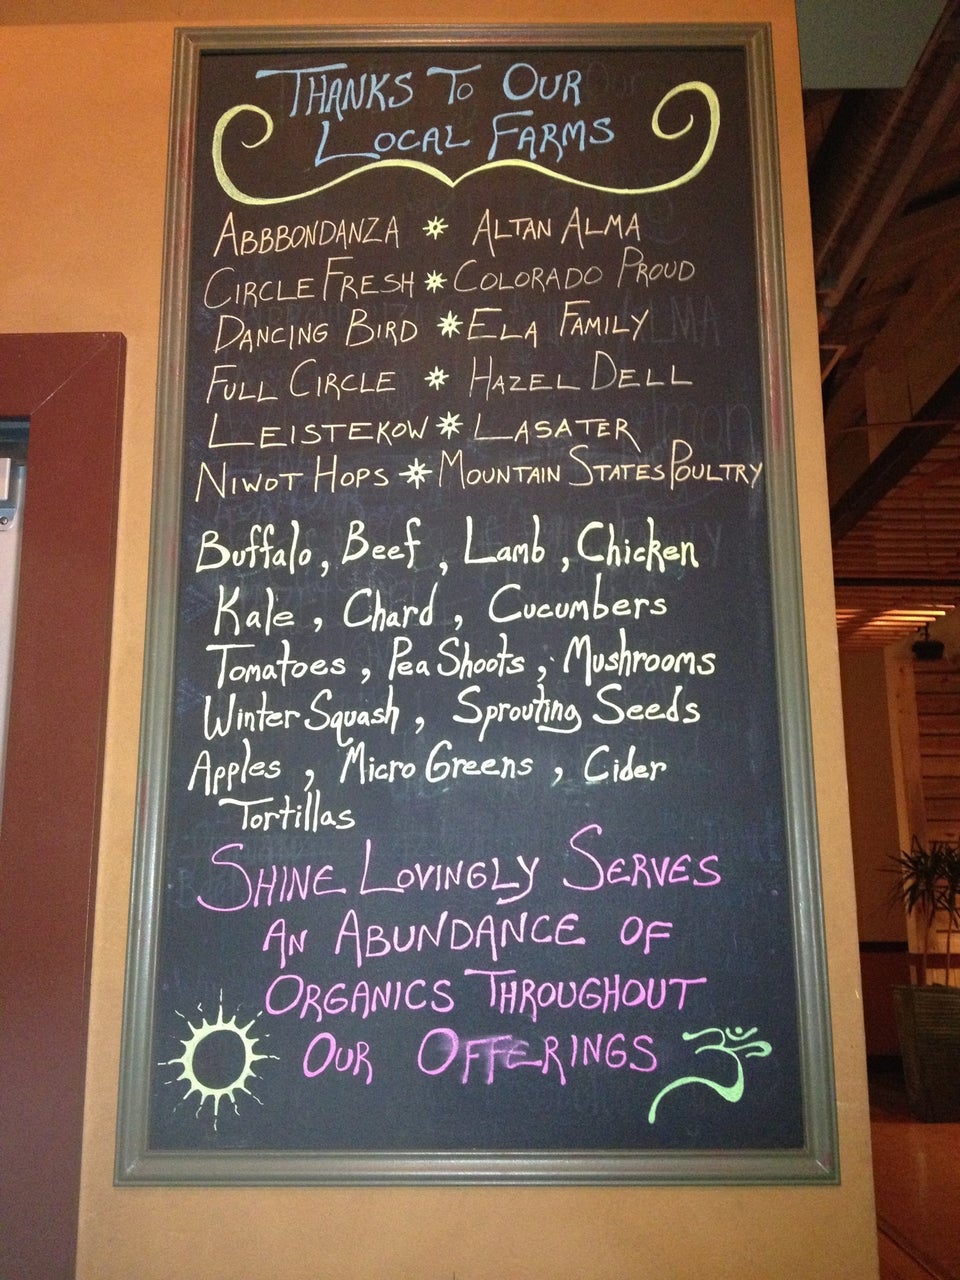 THANKS TO OUR
LOCAL FARMS
ABBBONDANZA * ALTAN ALMA
CIRCLE FRESH * COLORADO PROUD
DANCING BIRD * ELA FAMILY
FULL CIRCLE * HAZEL DELL
LEISTEKOW * LASATER
NIWOT HOPS * MOUNTAIN STATES POULTRY
Buffalo, Beef, Lamb, Chicken
Kale, Chard, Cucumbers
Tomatoes, Pea Shoots, Mushrooms
Winter Squash, Sprouting Seeds
Apples, Micro Greens, Cider
Tortillas
SHINE LOVINGLY SERVES
AN ABUNDANCE OF
ORGANICS THROUGHOUT
OUR OFFERINGS